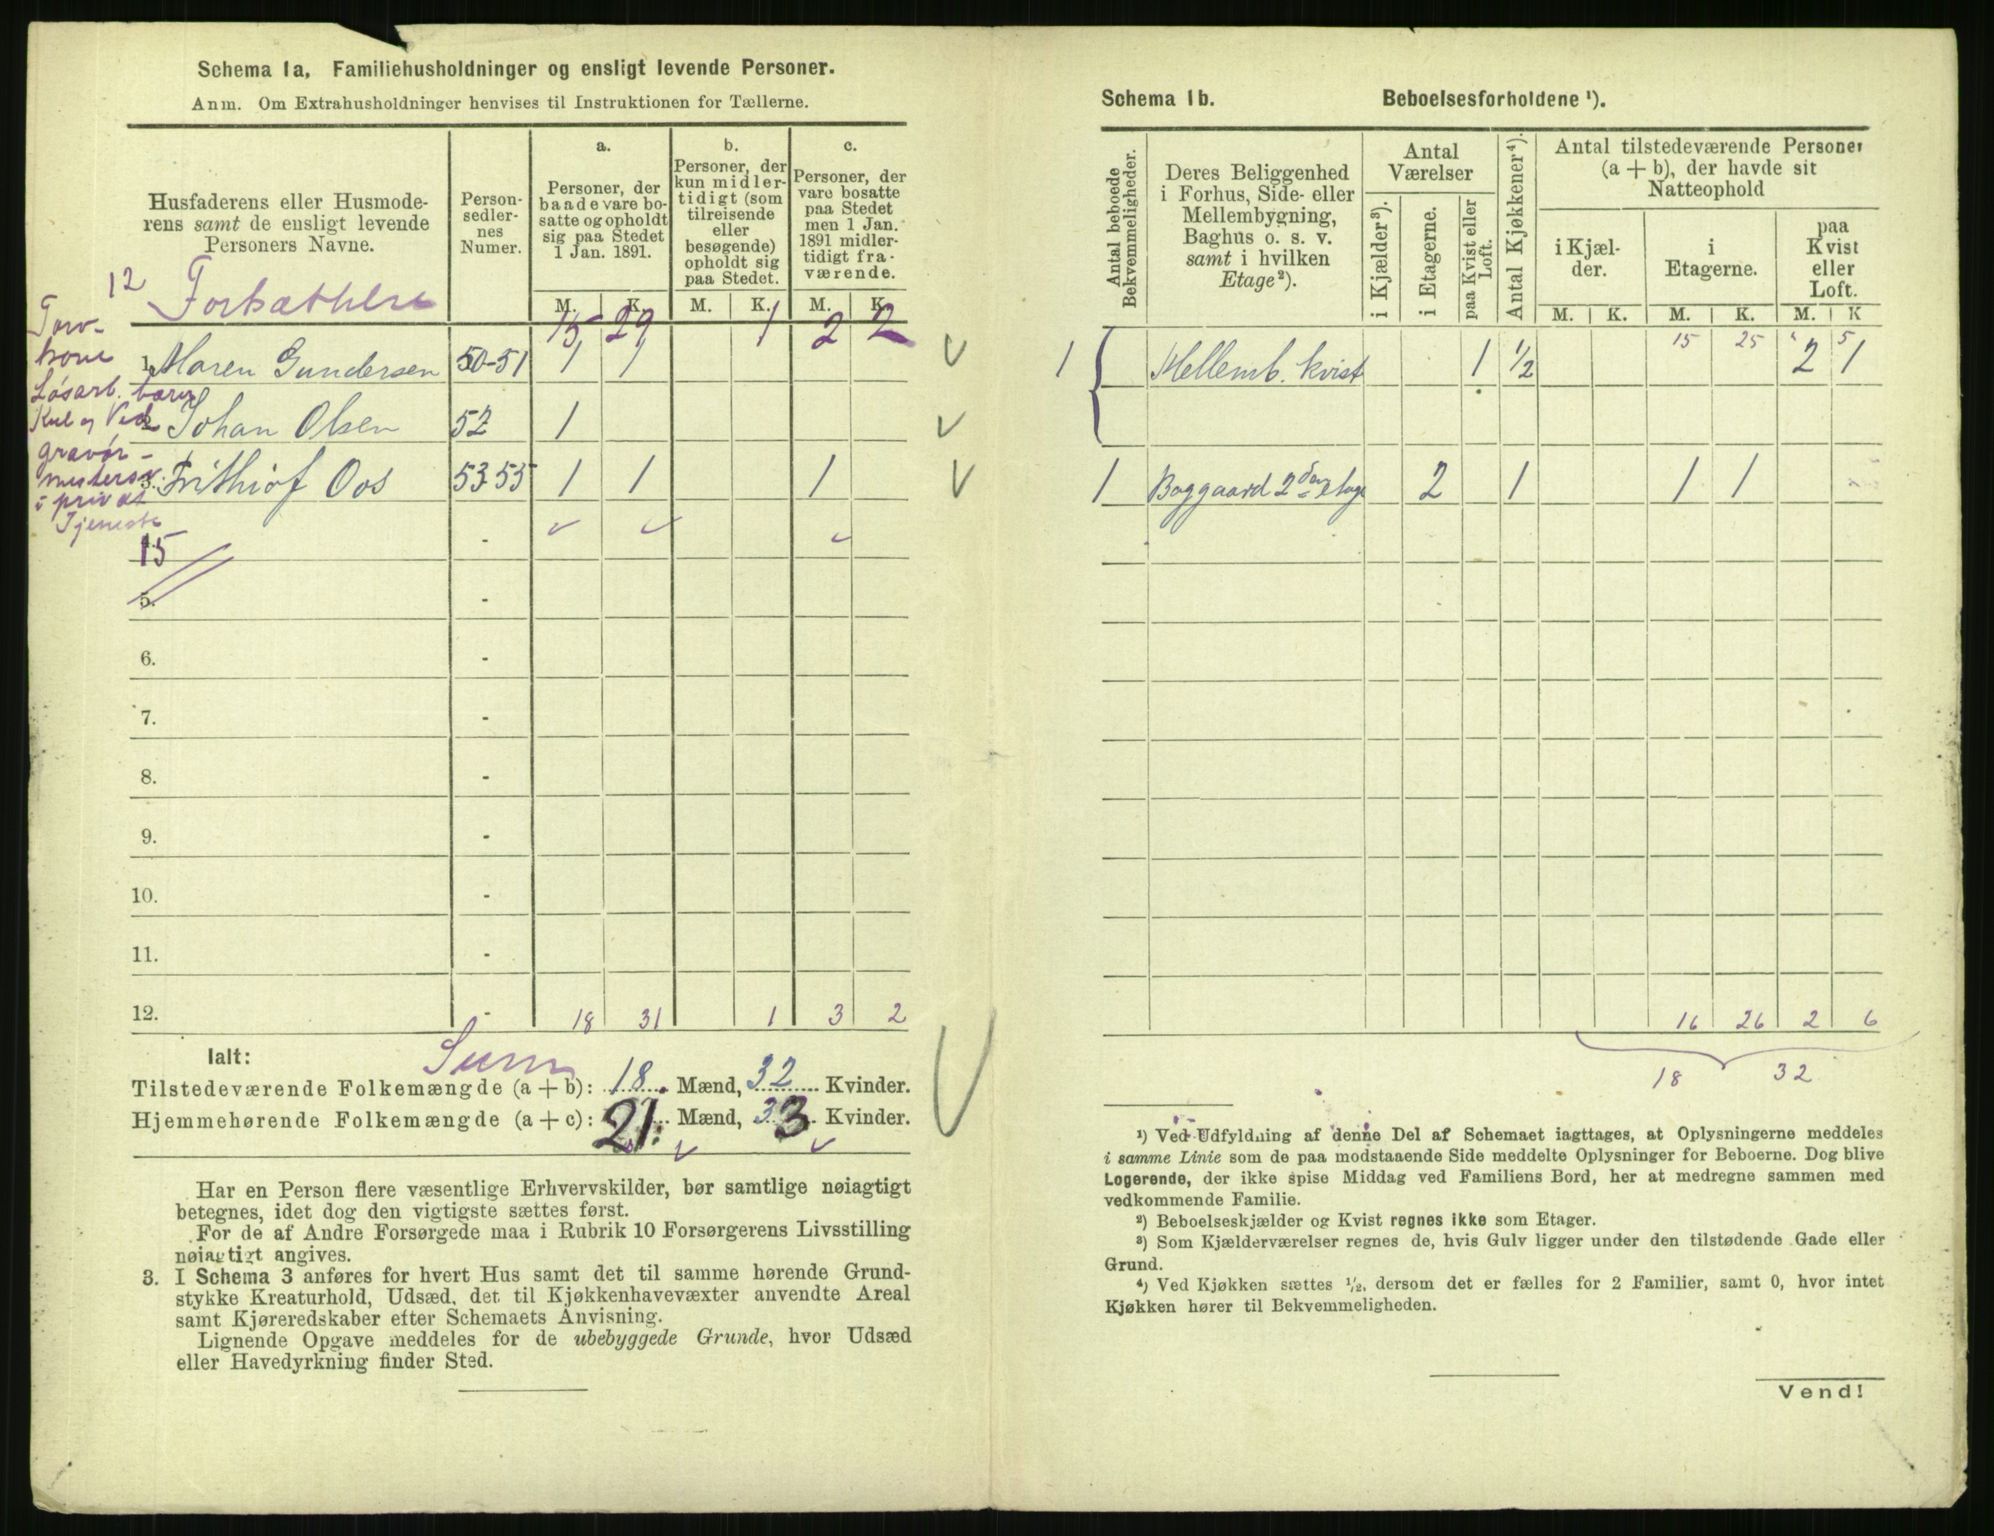 Schema 1a, Familiehusholdninger og ensligt levende Personer.
Anm. Om Extrahusholdninger henvises til Instruktionen for Tællerne.
Husfaderens eller Husmode-
rens samt de ensligt levende
Personers Navne.
Person-
sedler-
nes
Numer.
a.
Personer, der
baade vare bo-
satte og opholdt
sig paa Stedet
1 Jan. 1891.
b.
Personer, der
kun midler-
tidigt (som
tilreisende
eller
besøgende)
opholdt sig
paa Stedet.
c.
Personer, der
vare bosatte
paa Stedet
men 1 Jan.
1891 midler-
tidigt fra-
værende.
M. K. M. K. M. K.
12 15 29 1 2 2
Torv-
kone
1. Maren Gundersen 50-51 1 1
Løsarb. bærer
Kul og Ved
2. Johan Olsen 52 1
gravør-
i privat
Tjeneste
3. Frithiof Oos 53-55 1 1 1
15
5. -
6. -
7. -
8. -
9. -
10. -
11. -
12. - 18 31 1 3 2
Ialt:
Sum
Tilstedeværende Folkemængde (a + b): 18 Mænd, 32 Kvinder.
Hjemmehørende Folkemængde (a + c): 21 Mænd, 33 Kvinder.
Har en Person flere væsentlige Erhvervskilder, bør samtlige nøiagtigt
betegnes, idet dog den vigtigste sættes først.
For de af Andre Forsørgede maa i Rubrik 10 Forsørgerens Livsstilling
nøiagtigt angives.
3. I Schema 3 anføres for hvert Hus samt det til samme hørende Grund-
stykke Kreaturhold, Udsæd, det til Kjøkkenhavevæxter anvendte Areal
samt Kjøreredskaber efter Schemaets Anvisning.
Lignende Opgave meddeles for de ubebyggede Grunde, hvor Udsæd
eller Havedyrkning finder Sted.
Schema 1b. Beboelsesforholdene ¹).
Antal beboede
Bekvemmeligheder.
Deres Beliggenhed
i Forhus, Side- eller
Mellembygning,
Baghus o. s. v.
samt i hvilken
Etage²).
Antal
Værelser
i Kjælder³).
i Etagerne.
paa Kvist eller
Loft.
Antal Kjøkkener⁴).
Antal tilstedeværende Personer
(a + b), der havde sit
Natteophold
i Kjæl-
der.
i
Etagerne.
paa
Kvist
eller
Loft.
M. K. M. K. M. K
15 25 " 5
1 Mellemb. kvist 1 1/2 2 1
1 Baggaard 2den etage 2 1 1 1
16 26 2 6
18 32
¹) Ved Udfyldning af denne Del af Schemaet iagttages, at Oplysningerne meddeles
i samme Linie som de paa modstaaende Side meddelte Oplysninger for Beboerne. Dog blive
Logerende, der ikke spise Middag ved Familiens Bord, her at medregne sammen med
vedkommende Familie.
²) Beboelseskjælder og Kvist regnes ikke som Etager.
³) Som Kjælderværelser regnes de, hvis Gulv ligger under den tilstødende Gade eller
Grund.
⁴) Ved Kjøkken sættes ½, dersom det er fælles for 2 Familier, samt 0, hvor intet
Kjøkken hører til Bekvemmeligheden.
Vend!